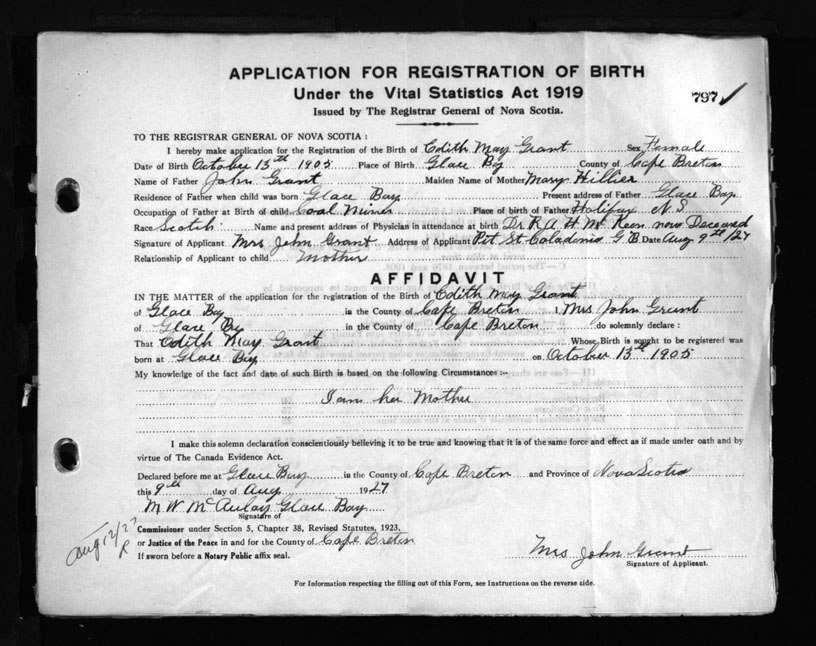 APPLICATION FOR REGISTRATION OF BIRTH
Under the Vital Statistics Act 1919
797 ✓
Issued by The Registrar General of Nova Scotia.
TO THE REGISTRAR GENERAL OF NOVA SCOTIA :
I hereby make application for the Registration of the Birth of Edith May Grant Sex Female
Date of Birth October 13th 1905 Place of Birth Glace By County of Cape Breton
Name of Father John Grant Maiden Name of Mother Mary Hillier
Residence of Father when child was born Glace Bay Present address of Father Glace Bay
Occupation of Father at Birth of child Coal Miner Place of birth of Father Halifax N.S.
Race Scotch Name and present address of Physician in attendance at birth Dr R A H McKeen now Deceased
Signature of Applicant Mrs John Grant Address of Applicant Pit St Caladonia G B. Date Aug 9th/27
Relationship of Applicant to child Mother
AFFIDAVIT
IN THE MATTER of the application for the registration of the Birth of Edith May Grant
of Glace By is in the County of Cape Breton I, Mrs John Grant
of Glace By in the County of Cape Breton do solemnly declare :
That Edith May Grant Whose Birth is sought to be registered was
born at Glace By on October 13th 1905
My knowledge of the fact and date of such Birth is based on the following Circumstances :-
I am her Mother
I make this solemn declaration conscientiously believing it to be true and knowing that it is of the same force and effect as if made under oath and by
virtue of The Canada Evidence Act.
Declared before me at Glace Bay in the County of Cape Breton and Province of Nova Scotia
this 9th day of Aug 1927
M. W. McAulay Glace Bay
Signature of
Commissioner under Section 5, Chapter 38, Revised Statutes, 1923.
or Justice of the Peace in and for the County of Cape Breton
If sworn before a Notary Public affix seal.
Aug 12/27
Mrs John Grant
Signature of Applicant.
For Information respecting the filling out of this Form, see Instructions on the reverse side.